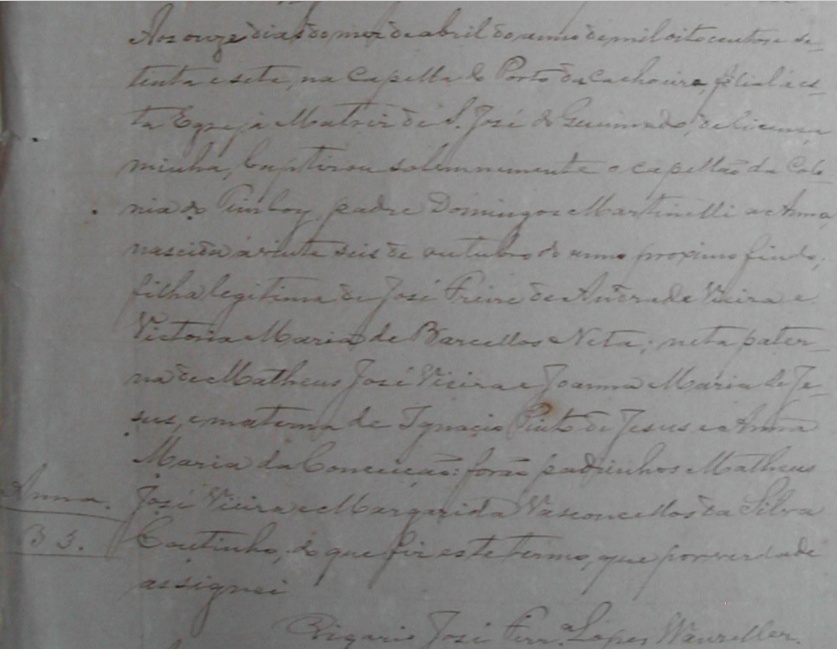 Aos onze dias do mez de abril do anno de mil oito centos e se-
tenta e sete, na Capella do Porto da Cachoeira, filial á es-
ta Egreja Matriz de S. José do Queimado, de licença
minha, baptizou solemnemente o capellão da Colo-
nia do Timboy padre Domingos Martinelli a Anna,
nascida a vinte seis de outubro do anno proximo findo;
filha legitima de José Freire de Andrade Vieira e
Victoria Maria de Barcellos Neta; neta pater-
na de Matheus José Vieira e Joanna Maria de Je-
sus, e materna de Ignacio Pinto de Jesus e Anna
Maria da Conceição: forão padrinhos Matheus
Anna. José Vieira e Margarida Vasconcellos da Silva
33. Coutinho, do que fiz este termo, que por verdade
assignei
Vigario José Ferr.ª Lopes